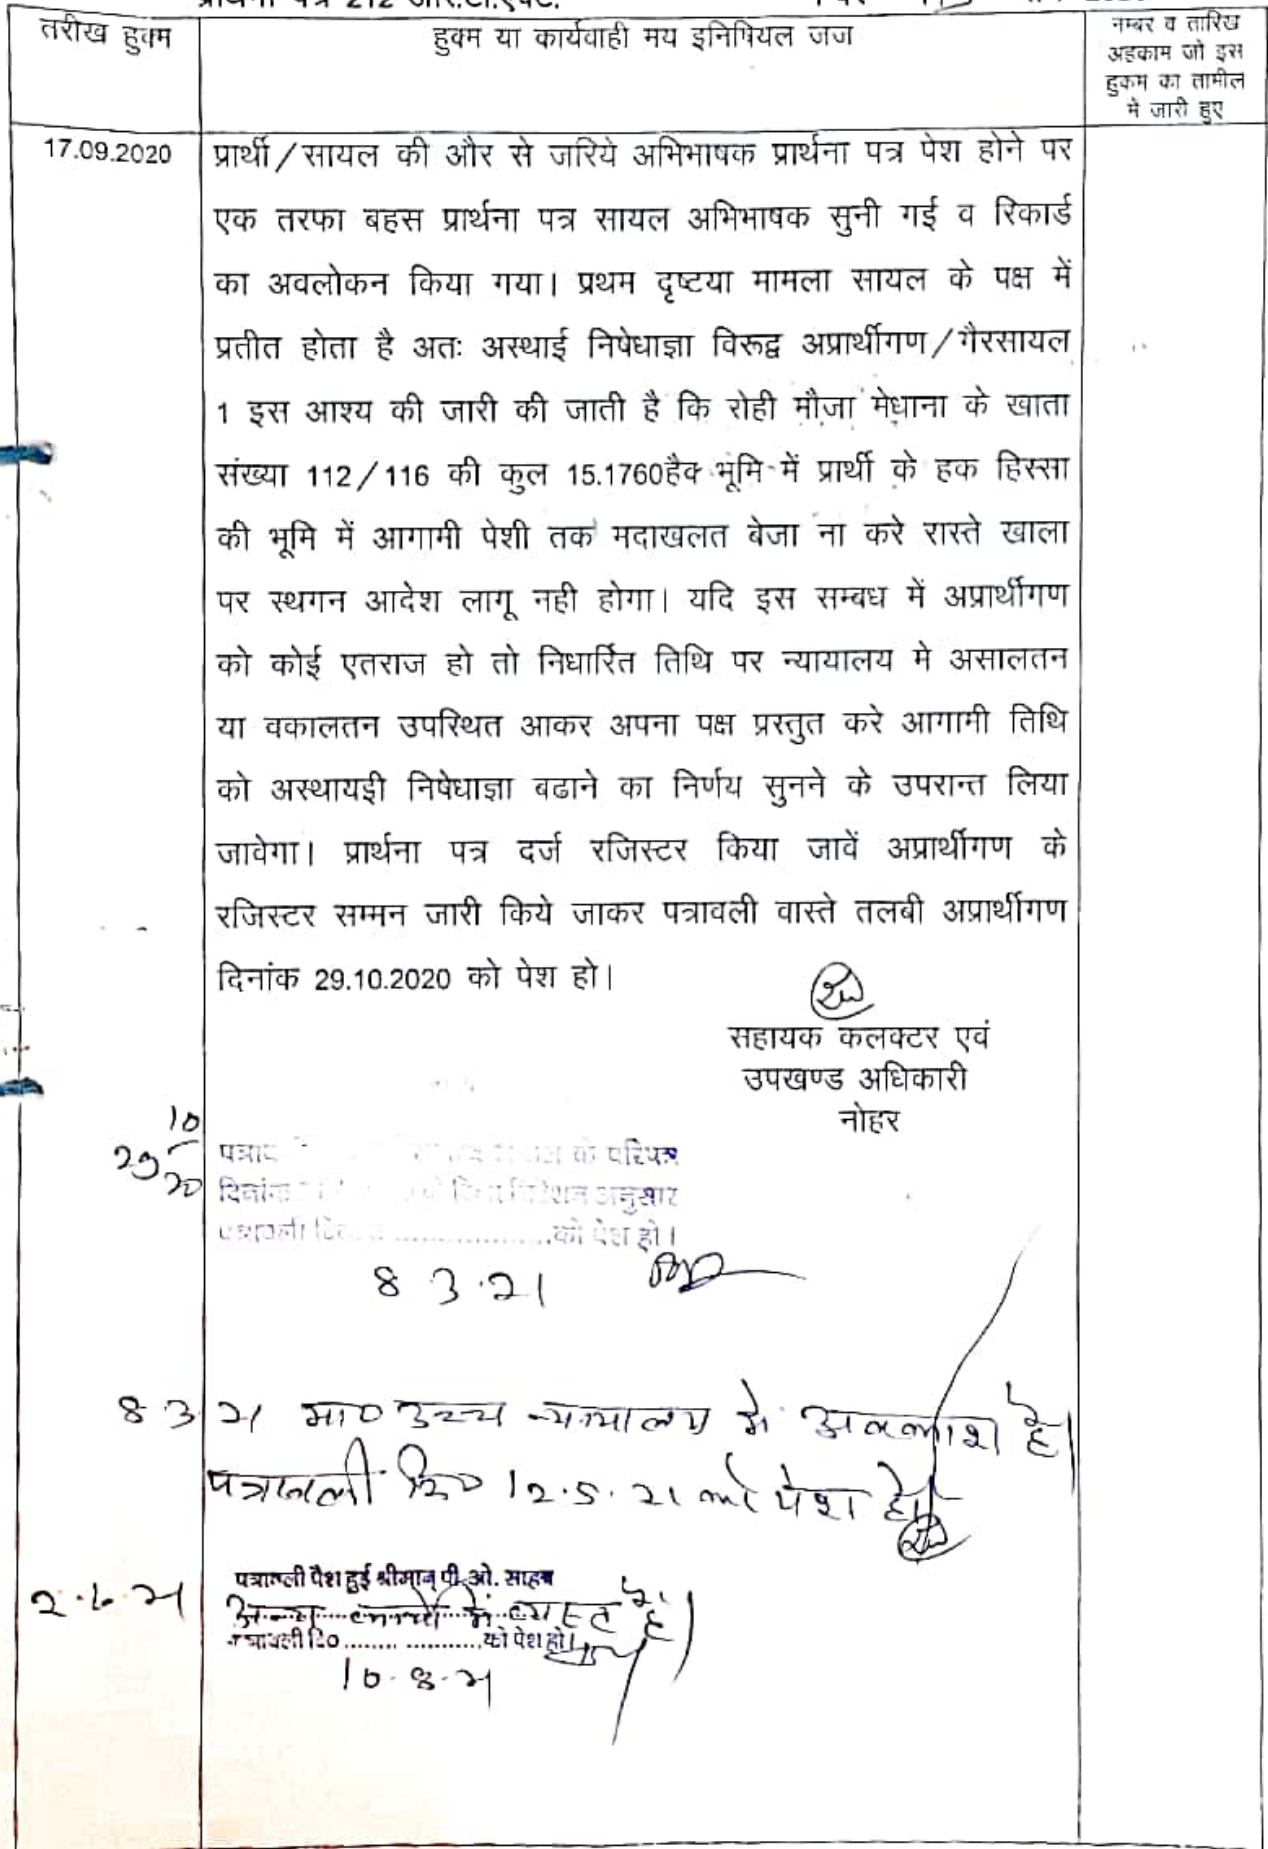 प्रार्थना पत्र 212 आर.टी.एक्ट.
तरीख हुक्म
हुक्म या कार्यवाही मय इनिषियल जज
नम्बर व तारिख
अहकाम जो इस
हुकम का तामील
मे जारी हुए
17.09.2020
प्रार्थी/सायल की और से जरिये अभिभाषक प्रार्थना पत्र पेश होने पर
एक तरफा बहस प्रार्थना पत्र सायल अभिभाषक सुनी गई व रिकार्ड
का अवलोकन किया गया। प्रथम दृष्टया मामला सायल के पक्ष में
प्रतीत होता है अतः अस्थाई निषेधाज्ञा विरूद्व अप्रार्थीगण/गैरसायल
1 इस आश्य की जारी की जाती है कि रोही मौजा मेधाना के खाता
संख्या 112/116 की कुल 15.1760हैक भूमि में प्रार्थी के हक हिस्सा
की भूमि में आगामी पेशी तक मदाखलत बेजा ना करे रास्ते खाला
पर स्थगन आदेश लागू नही होगा। यदि इस सम्बध में अप्रार्थीगण
को कोई एतराज हो तो निधारित तिथि पर न्यायालय मे असालतन
या वकालतन उपस्थित आकर अपना पक्ष प्रस्तुत करे आगामी तिथि
को अस्थायइी निषेधाज्ञा बढाने का निर्णय सुनने के उपरान्त लिया
जावेगा। प्रार्थना पत्र दर्ज रजिस्टर किया जावें अप्रार्थीगण के
रजिस्टर सम्मन जारी किये जाकर पत्रावली वास्ते तलबी अप्रार्थीगण
दिनांक 29.10.2020 को पेश हो।
सहायक कलक्टर एवं
उपखण्ड अधिकारी
नोहर
29 10 20
के परिपत्र
दिनांक अनुसार
पत्रावली को पेश हो।
8.3.21
8.3.21 मा0 उच्च न्यायालय मे अवकाश है।
पत्रावली दि0 12.5.21 को पेश हो।
पत्रावली पेश हुई श्रीमान् पी.ओ. साहब
2.6.21 अन्य कार्यो में व्यस्त है।
पत्रावली दि0 .................... को पेश हो।
10.8.21